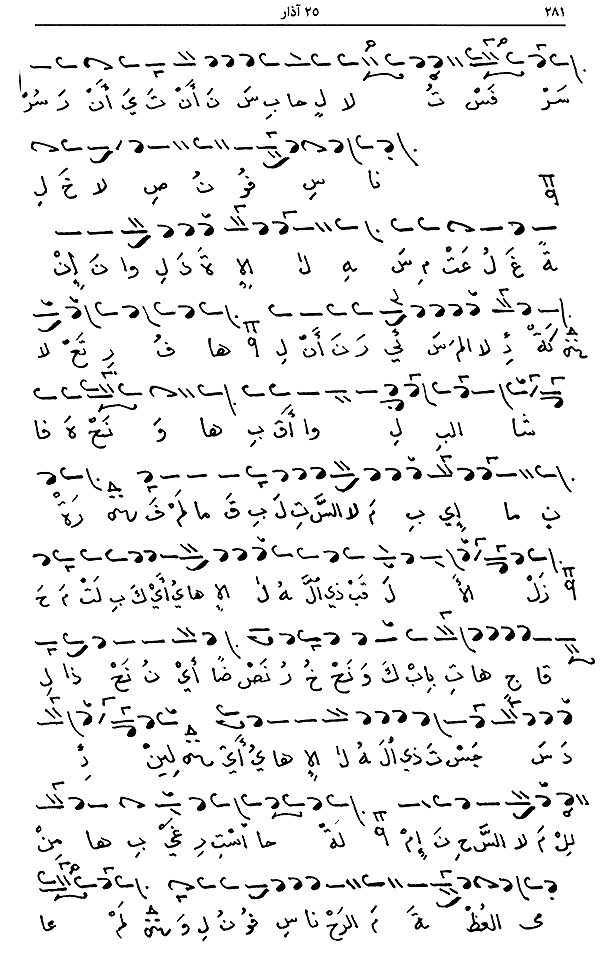 ٢٨١ ٢٥ آذار
سَرْ فَسْ تُ لا لٍ حابِ سَ نَ أَنْ تَ يَ أَنْ رَ سُرْ
نا سِ فو نُ صِ لا خَ لِ
ةً غَ لُ عَتْ مِ سَ هِ لٰ الإِ ةَ دَ لِ وا نَ إِنْ
كَةْ ذِ لا المَ سَ ئي رَ نَ أَنْ لِ ها فُ رِ تَعْ لا
شا البـ لِ وا أَقَ بِ ها وَ نَحْ هَ فا
نِ ما إي بِ مَ لا السَّ تِ لَ بِ قَ ما لَمْ فَ رَةْ
زَلْ الأَ لَ قَبْ ذي الَّ هُ لٰ الإِ ها يُ أَيْ كَ بِ لَتْ مَ حَ
قا جِ ها تِ بابْ كَ وَ نَحْ خُ رُ نَصْ ضًا أَيْ نُ نَحْ ذا لِ
دَ سَ جَسْ تَ ذي الَ هُ لٰ الإِ ها يُ أَيْ لِينْ ذِ
لِلْ مَ لا السَّ حِ نَ إِمْ لَةْ حا اسْتِ رِ غَيْ بِ ها مِنْ
مى العُظْ ةَ مَ الرَحْ نا سِ فو نُ لِ وَ لَمْ عا